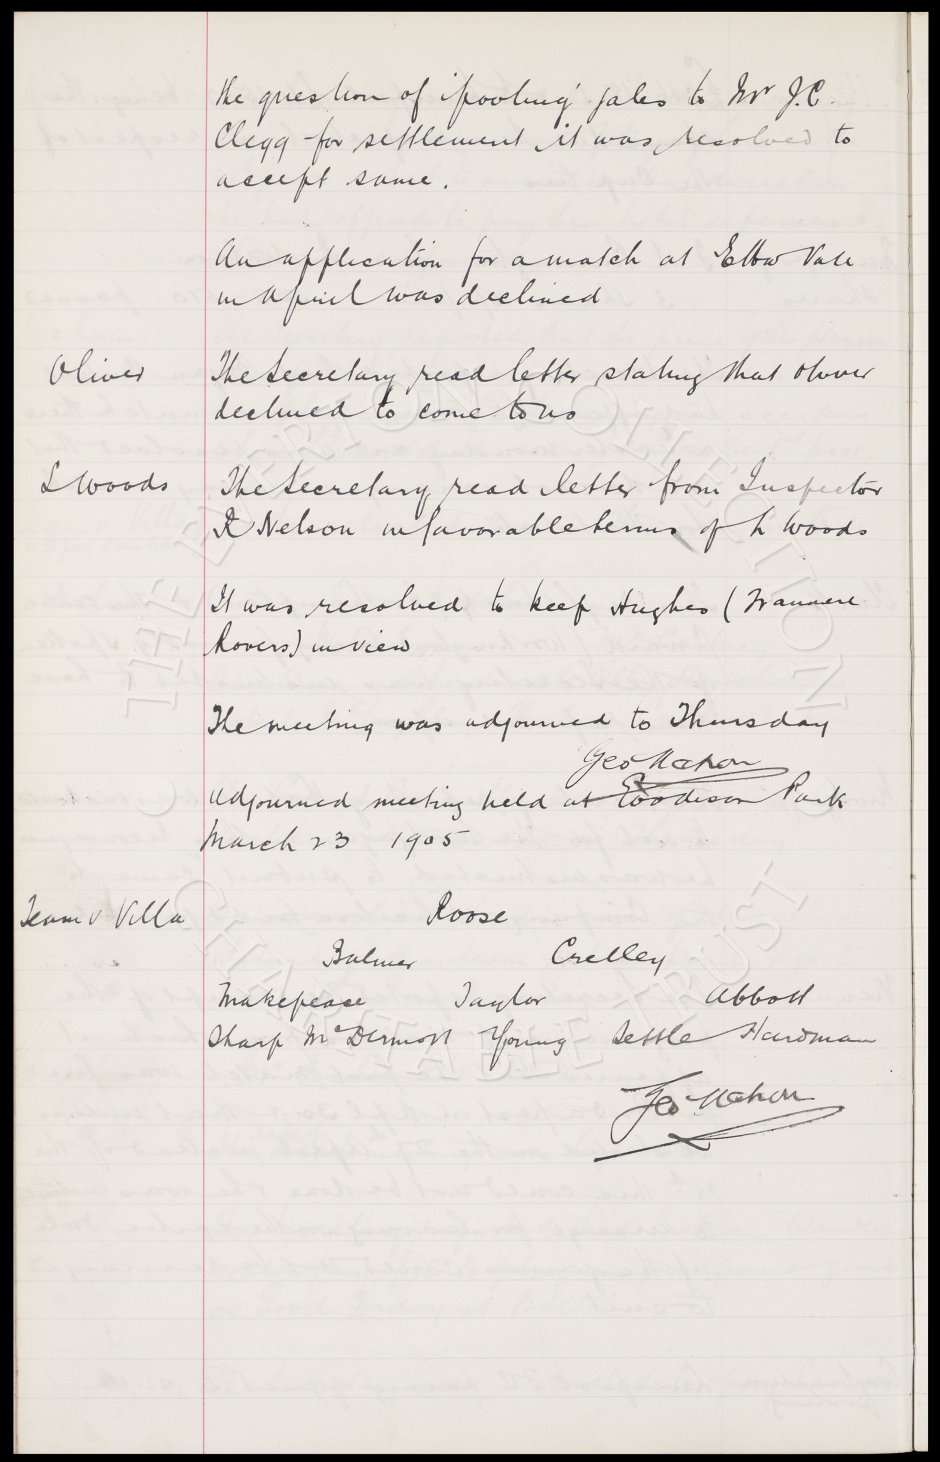 the question of 'pooling' gates to Mr J.C.
Clegg for settlement it was resolved to
accept same.
An application for a match at Ebbw Vale
in April was declined
Oliver The Secretary read letter stating that Oliver
declined to come to us
L Woods The Secretary read letter from Inspector
R Nelson in favorable terms of L Woods
It was resolved to keep Hughes (Tranmere
Rovers) in view
The meeting was adjourned to Thursday
Geo Mahon
Adjourned meeting held at Goodison Park
March 23 1905
Team v Villa Roose
Balmer Crelley
Makepeace Taylor Abbott
Sharp McDermott Young Settle Hardman
Geo Mahon
THE EVERTON COLLECTION
CHARITABLE TRUST